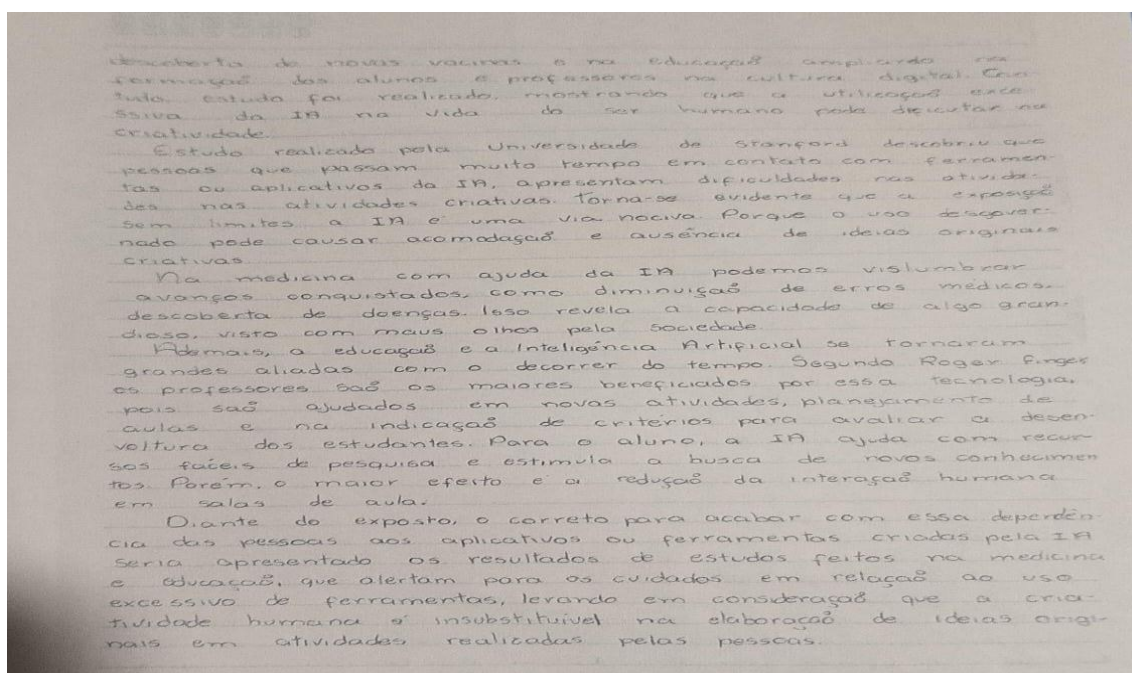 descoberta de novas vacinas e na educação ampliando na
formação dos alunos e professores na cultura digital. Con
tudo, estudo foi realizado, mostrando que a utilização exce
ssiva da IA na vida do ser humano pode dificutar na
criatividade.
Estudo realizado pela Universidade de Stanford descobriu que
pessoas que passam muito tempo em contato com ferramen
tas ou aplicativos da IA, apresentam dificuldades nas ativida-
des nas atividades criativas. Torna-se evidente que a exposição
sem limites a IA é uma via nociva. Porque o uso desgover-
nado pode causar acomodação e ausência de ideias originais
criativas.
Na medicina com ajuda da IA podemos vislumbrar
avanços conquistados, como diminuição de erros médicos,
descoberta de doenças. Isso revela a capacidade de algo gran-
dioso, visto com maus olhos pela sociedade.
Ademais, a educação e a Inteligência Artificial se tornaram
grandes aliadas com o decorrer do tempo. Segundo Roger Finger
os professores são os maiores beneficiados por essa tecnologia,
pois são ajudados em novas atividades, planejamento de
aulas e na indicação de critérios para avaliar a desen-
voltura dos estudantes. Para o aluno, a IA ajuda com recur
sos fáceis de pesquisa e estimula a busca de novos conhecimen
tos. Porém, o maior efeito é a redução da interação humana
em salas de aula.
Diante do exposto, o correto para acabar com essa dependên-
cia das pessoas aos aplicativos ou ferramentas criadas pela IA
seria apresentado os resultados de estudos feitos na medicina
e educação, que alertam para os cuidados em relação ao uso
excessivo de ferramentas, levando em consideração que a cria-
tividade humana é insubstituível na elaboração de ideias origi-
nais em atividades realizadas pelas pessoas.